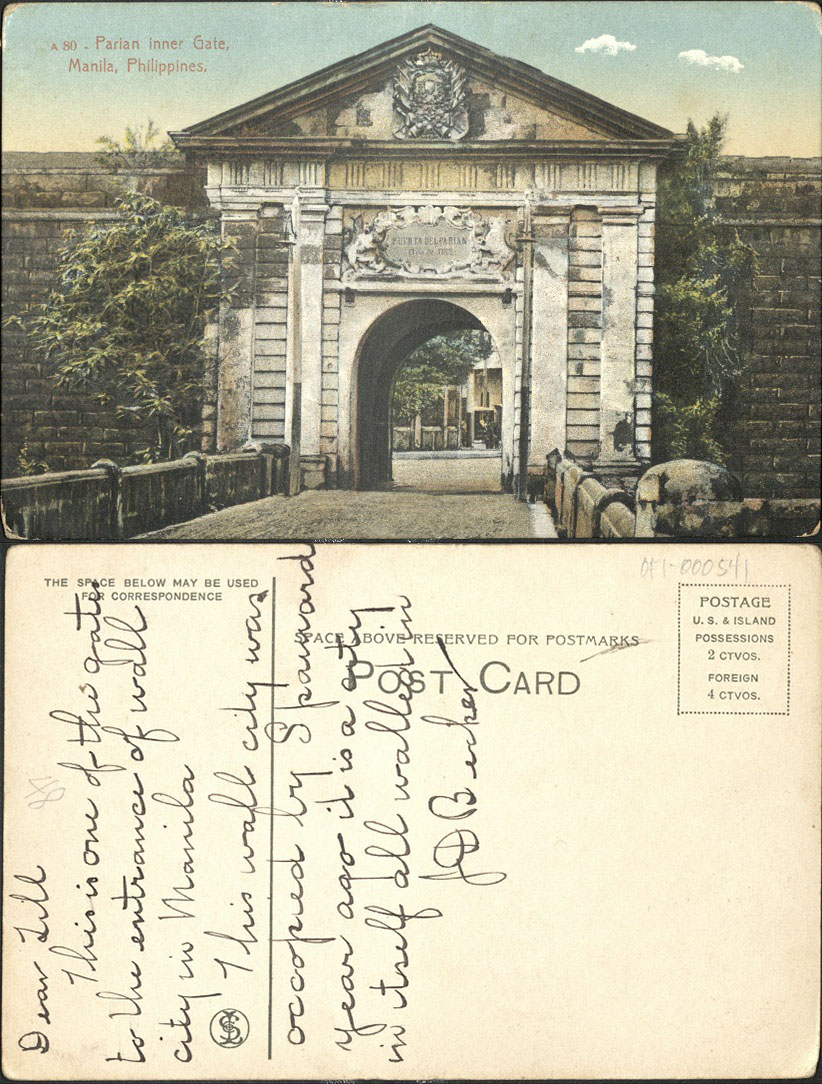 A 80 - Parian inner Gate,
Manila, Philippines.
PUERTA DEL PARIAN
THE SPACE BELOW MAY BE USED
FOR CORRESPONDENCE
SPACE ABOVE RESERVED FOR POSTMARKS
POST CARD
POSTAGE
U. S. & ISLAND
POSSESSIONS
2 CTVOS.
FOREIGN
4 CTVOS.
OF1-000541
Dear Lill
This is one of the gates
to the entrance of wall
city in Manila
This wall city was
occopied by Spainard
year ago it is a city
in itself all walled in
JD Becker